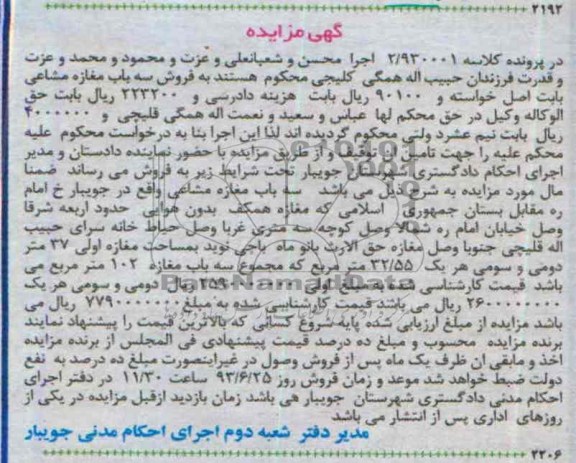 ۲۱۹۲
گهی مزایده
در پرونده کلاسه ۲/۹۳۰۰۰۱ اجرا محسن و شعبانعلی و عزت و محمود و محمد و عزت
و قدرت فرزندان حبیب اله همگی کلیجی محکوم هستند به فروش سه باب مغازه مشاعی
بابت اصل خواسته و ۹۰۱۰۰ ریال بابت هزینه دادرسی و ۲۲۳۲۰۰ ریال بابت حق
الوکاله وکیل در حق محکم لها عباس و سعید و نعمت اله همگی قلیچی و ۴۰۰۰۰۰۰
ریال بابت نیم عشرد ولتی محکوم گردیده اند لذا این اجرا بنا به درخواست محکوم علیه
محکم علیه را جهت تامین آن توقیف و از طریق مزایده با حضور نماینده دادستان و مدیر
اجرای احکام دادگستری شهرستان جویبار تحت شرایط زیر به فروش می رساند ضمنا
مال مورد مزایده به شرح ذیل می باشد سه باب مغازه مشاعی واقع در جویبار خ امام
ره مقابل بستان جمهوری اسلامی که مغازه همکف بدون هوایی حدود اربعه شرقا
وصل خیابان امام ره شمالا وصل کوچه سه متری غربا وصل حیاط خانه سرای حبیب
اله قلیچی جنوبا وصل مغازه حق الارث بانو ماه باجی نوید بمساحت مغازه اولی ۳۷ متر
دومی و سومی هر یک ۳۲/۵۵ متر مربع که مجموع سه باب مغازه ۱۰۲ متر مربع می
باشد قیمت کارشناسی شده مبلغ اول ریال دومی و سومی هر یک
۲۶۰۰۰۰۰۰۰۰ ریال می باشد قیمت کارشناسی شده به مبلغ ۷۷۹۰۰۰۰۰۰۰ ریال می
باشد مزایده از مبلغ ارزیابی شده پایه شروع کسانی که بالاترین قیمت را پیشنهاد نمایند
برنده مزایده محسوب و مبلغ ده درصد قیمت پیشنهادی فی المجلس از برنده مزایده
اخذ و مابقی ان ظرف یک ماه پس از فروش وصول در غیراینصورت مبلغ ده درصد به نفع
دولت ضبط خواهد شد موعد و زمان فروش روز ۹۳/۶/۲۵ ساعت ۱۱/۳۰ در دفتر اجرای
احکام مدنی دادگستری شهرستان جویبار هی باشد زمان بازدید ازقبل مزایده در یکی از
روزهای اداری پس از انتشار می باشد
مدیر دفتر شعبه دوم اجرای احکام مدنی جویبار
۲۲۰۶